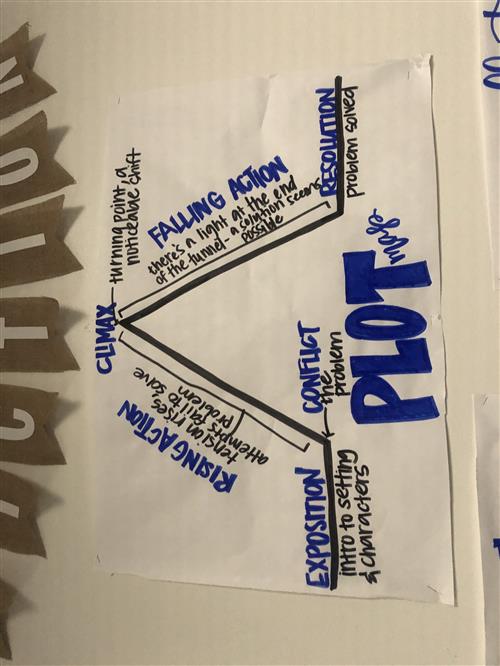 ICTION
CLIMAX
turning point, a
noticeable shift
RISING ACTION
tension rises,
attempts fail to solve
problem
FALLING ACTION
there's a light at the end
of the tunnel - a solution seems
possible
EXPOSITION
intro to setting
& characters
CONFLICT
the
problem
RESOLUTION
problem solved
PLOT
map